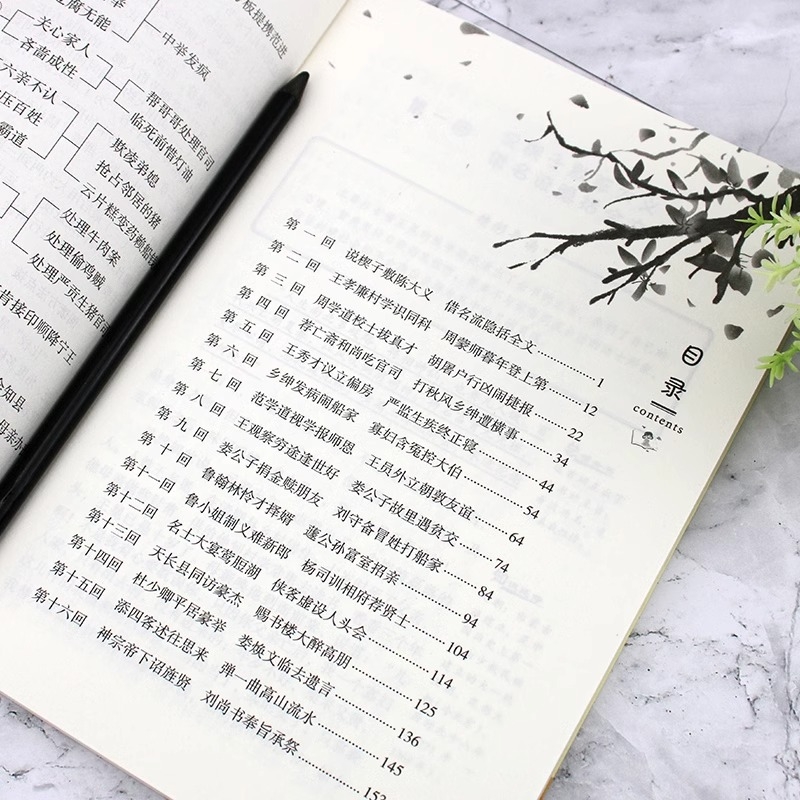 腐无能
关心家人
吝啬成性
六亲不认
压百姓
霸道
板提携范进
中举发疯
帮哥哥处理官司
临死前惜灯油
欺凌弟媳
抢占邻居的猪
云片糕变药赖船钱
处理牛肉案
处理偷鸡贼
处理严贡生猪官司
肯接印师降宁王
知县
母亲
目录
contents
第一回 说楔子敷陈大义 借名流隐括全文……1
第二回 王孝廉村学识同科 周蒙师暮年登上第……12
第三回 周学道校士拔真才 胡屠户行凶闹捷报……22
第四回 荐亡斋和尚吃官司 打秋风乡绅遭横事……34
第五回 王秀才议立偏房 严监生疾终正寝……44
第六回 乡绅发病闹船家 寡妇含冤控大伯……54
第七回 范学道视学报师恩 王员外立朝敦友谊……64
第八回 王观察穷途逢世好 娄公子故里遇贫交……74
第九回 娄公子捐金赎朋友 刘守备冒姓打船家……84
第十回 鲁翰林怜才择婿 蘧公孙富室招亲……94
第十一回 鲁小姐制义难新郎 杨司训相府荐贤士……104
第十二回 名士大宴莺脰湖 侠客虚设人头会……114
第十三回 天长县同访豪杰 赐书楼大醉高朋……125
第十四回 杜少卿平居豪举 娄焕文临去遗言……136
第十五回 添四客述往思来 弹一曲高山流水……145
第十六回 神宗帝下诏旌贤 刘尚书奉旨承祭……153